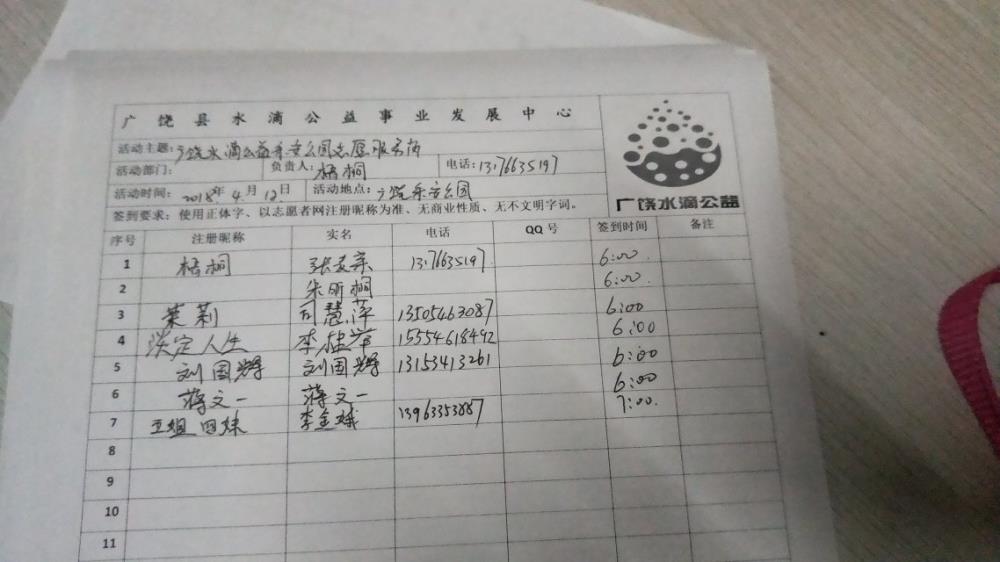 广饶县水滴公益事业发展中心
活动主题：广饶水滴公益乐安公园志愿服务岗
活动部门： 负责人：梧桐 电话：13176635197
活动时间：2018年4月12日 活动地点：广饶乐安公园
签到要求：使用正体字、以志愿者网注册昵称为准、无商业性质、无不文明字词。
广饶水滴公益
序号 注册昵称 实名 电话 QQ号 签到时间 备注
1 梧桐 13176635197 6:00
2 朱昕桐 6:00
3 茉莉 慧萍 13505463087 6:00
4 淡定人生 15554618492 6:00
5 刘国辉 刘国辉 13153413261 6:00
6 蒋文一 蒋文一 6:00
7 王姐四妹 李金娥 13963353887 7:00
8
9
10
11